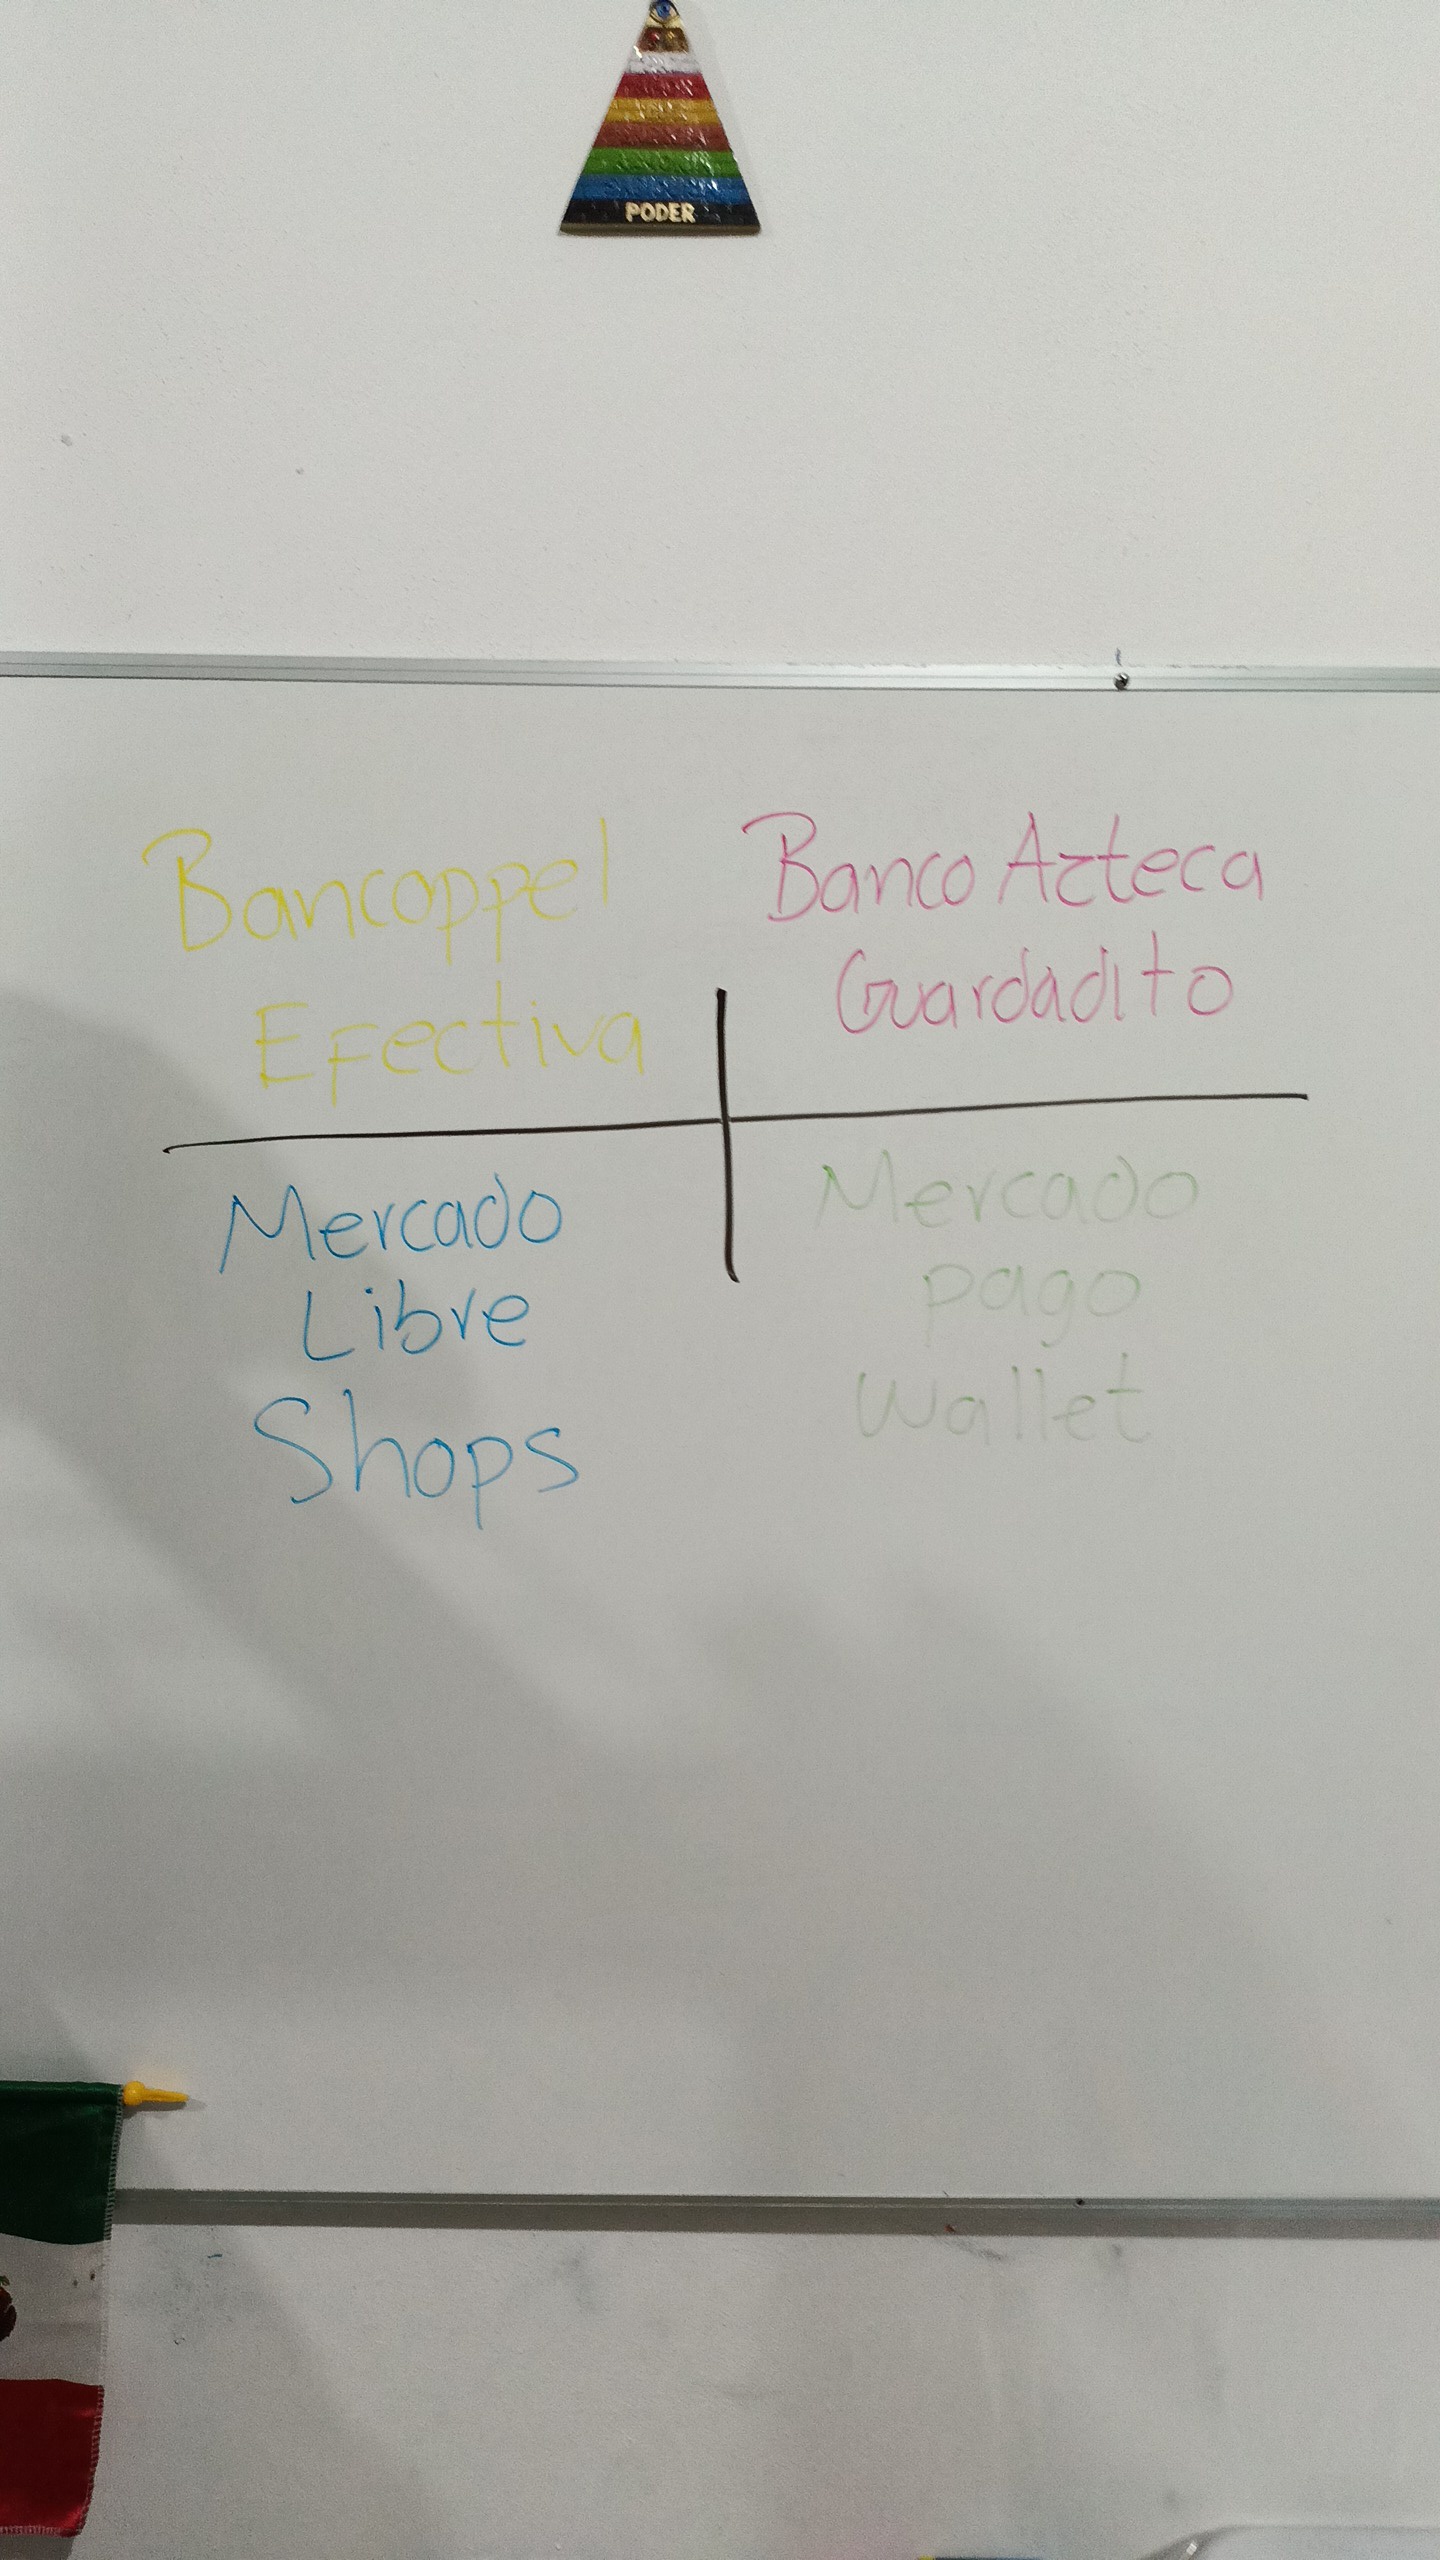 PODER
Bancoppel
Efectiva
Banco Azteca
Guardadito
Mercado
Libre
Shops
Mercado
pago
wallet